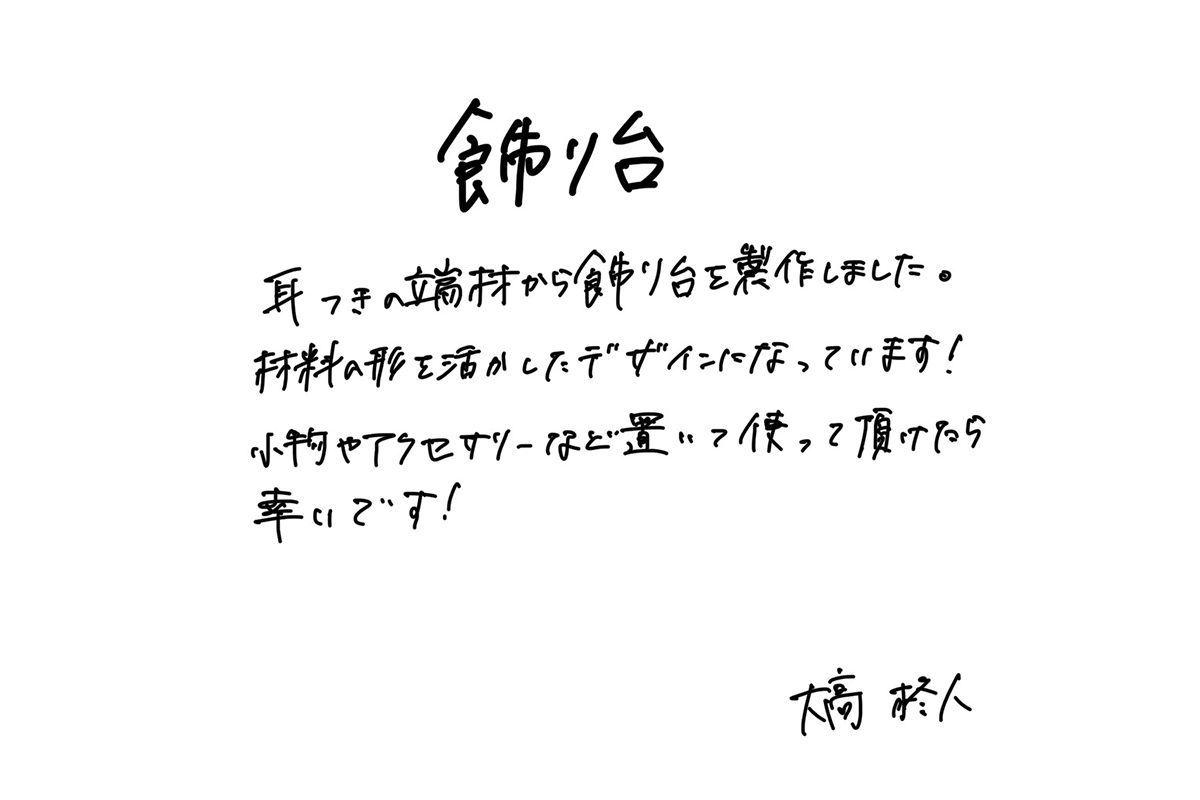 飾り台
耳つきの端材から飾り台を製作しました。
材料の形を活かしたデザインになっています!
小物やアクセサリーなど置いて使って頂けたら
幸いです!
大高 柊人